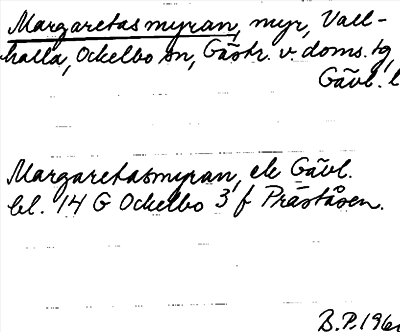 Margaretasmyran, myr, Vall-
halla, Ockelbo sn, Gästr. v. doms. tg,
Gävl. l
Margaretasmyran, ek Gävl.
bl. 14 G Ockelbo 3 f Präståsen.
B.P. 196